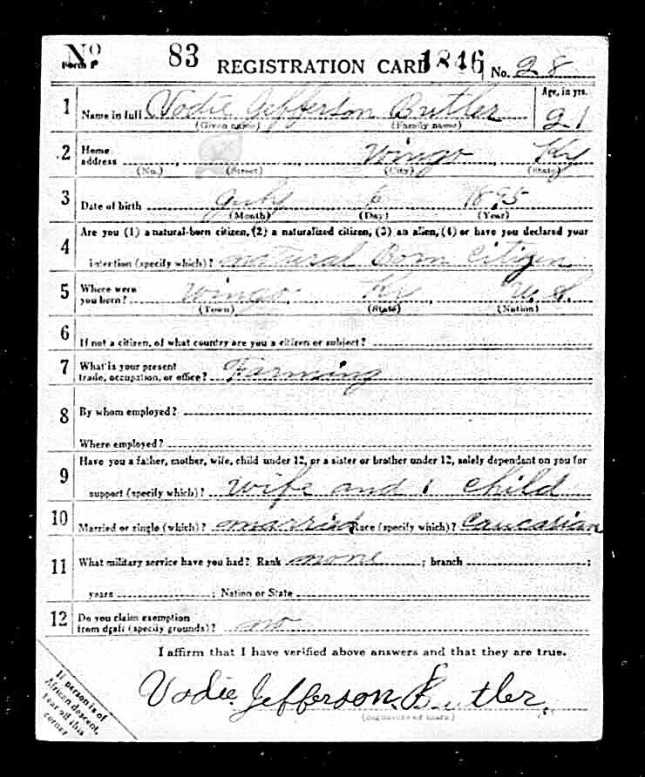 Form 1 No 83 REGISTRATION CARD 1846 No. 28
1 Name in full Vodie Jefferson Butler Age, in yrs. 21
(Given name) (Family name)
2 Home address Wingo Ky
(No.) (Street) (City) (State)
3 Date of birth July 6 1895
(Month) (Day) (Year)
4 Are you (1) a natural-born citizen, (2) a naturalized citizen, (3) an alien, (4) or have you declared your
intention (specify which)? natural born citizen
5 Where were you born? Wingo Ky U.S.
(Town) (State) (Nation)
6 If not a citizen, of what country are you a citizen or subject?
7 What is your present trade, occupation, or office? Farming
8 By whom employed?
Where employed?
9 Have you a father, mother, wife, child under 12, or a sister or brother under 12, solely dependent on you for
support (specify which)? wife and 1 child
10 Married or single (which)? married Race (specify which)? Caucasian
11 What military service have you had? Rank none ; branch ;
years ; Nation or State
12 Do you claim exemption from draft (specify grounds)? no
I affirm that I have verified above answers and that they are true.
Vodie Jefferson Butler
(Signature or mark)
If person is of
African descent,
tear off this
corner